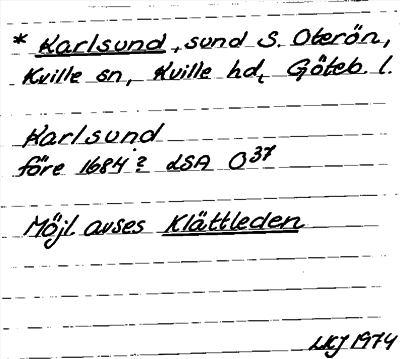 * Karlsund, sund S. Oterön,
Kville sn, Kville hd, Göteb. l.
Karlsund
före 1684? LSA O37
Möjl. avses Klättleden
LKJ 1974